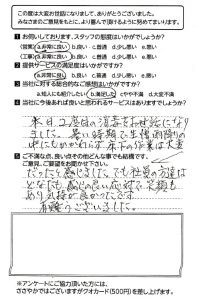 この度は大変お世話になりまして、ありがとうございました。
みなさまのご意見をもとに、より喜んで頂けるように努めてまいります。
1 お伺いしております、スタッフの態度はいかがでしょうか?
(営業) a.非常に良い b.良い c.普通 d.少し悪い e.悪い
(工事) a.非常に良い b.良い c.普通 d.少し悪い e.悪い
2 提供サービスの満足度はいかがですか?
a.非常に良い b.良い c.普通 d.少し悪い e.悪い
3 当社に対する総合的なご感想はいかがですか?
a.他人にも紹介したい b.満足した c.やや不満 d.大変不満
4 当社に今後あれば良いと思われるサービスはありますでしょうか?
本日、2度目の消毒をお世話になり
ました。暑い時期で生憎雨降りの
中にもかかわらず床下の作業は大変
5 ご不満な点、良い点その他どんな事でも結構です。
ご意見、ご要望をお聞かせ下さい。
だったと感じました。でも社員の方達は
どなたも感じの良い応対で
お礼 良かったです。
有難うございました。
※アンケートにご協力頂いた方には、
ささやかではございますがクオカード(500円)を差し上げます。